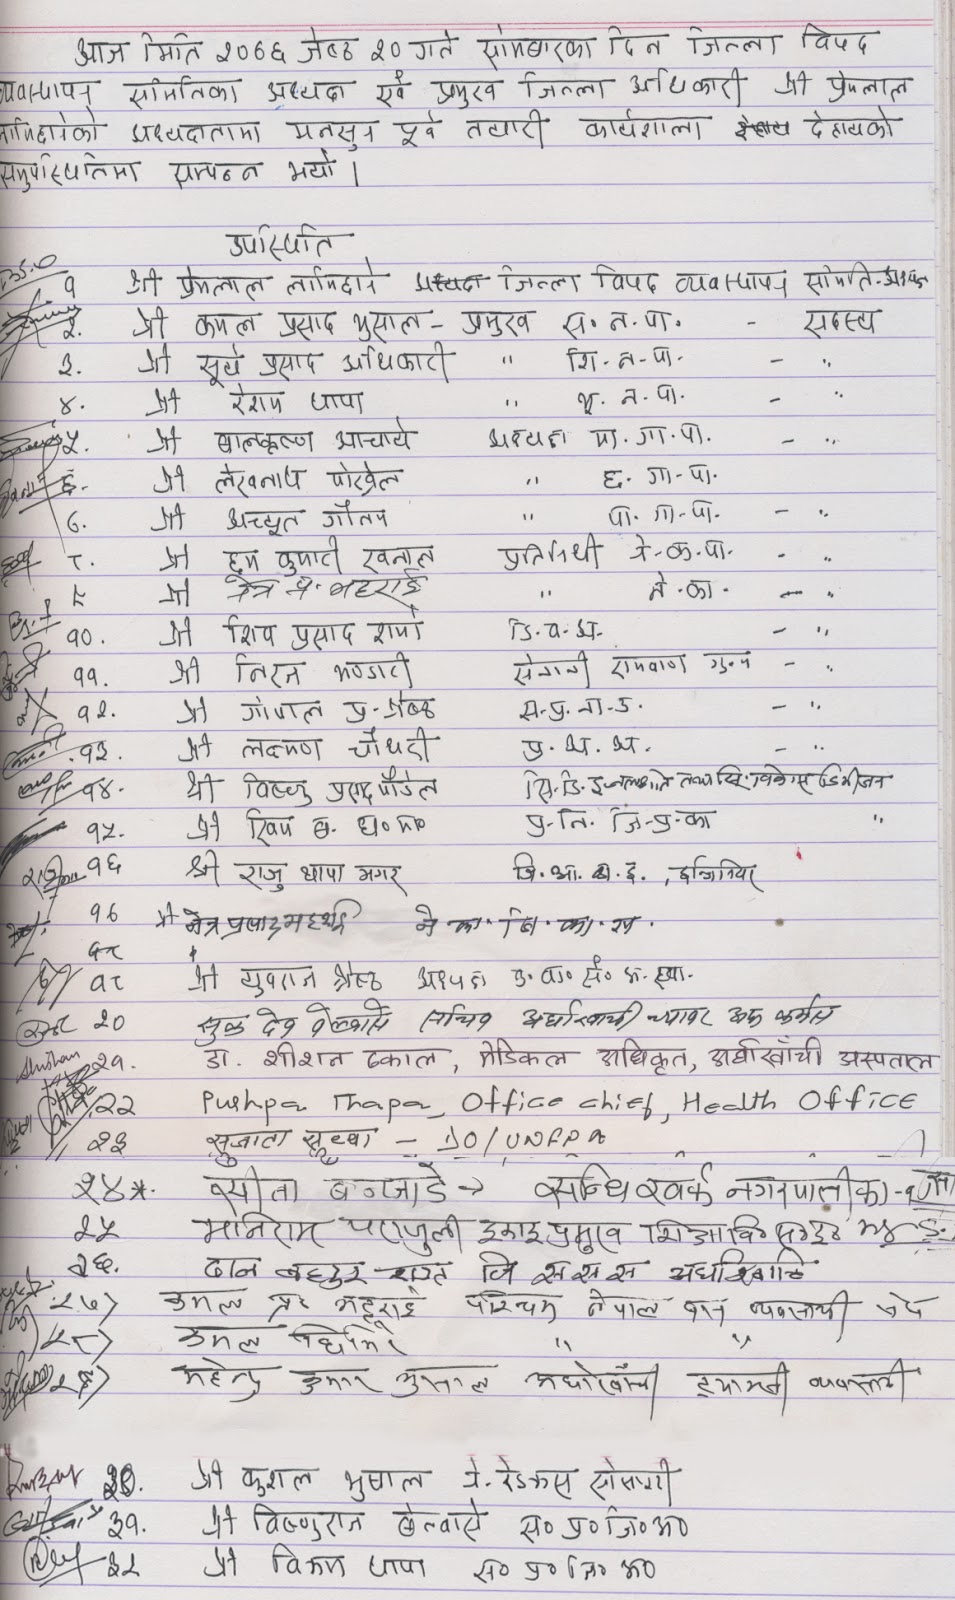 आज मिति २०७६ जेष्ठ २० गते सोमबारका दिन जिल्ला विपद
व्यवस्थापन समितिका अध्यक्ष एवं प्रमुख जिल्ला अधिकारी श्री प्रेमलाल
लामिछानेको अध्यक्षतामा मनसुन पूर्व तयारी कार्यशाला देहायको
समुपस्थितिमा सम्पन्न भयो ।
उपस्थिति
१ श्री प्रेमलाल लामिछाने अध्यक्ष जिल्ला विपद व्यवस्थापन समिति - अध्यक्ष
२. श्री कमल प्रसाद भुसाल - प्रमुख स. न. पा. - सदस्य
३. श्री सूर्य प्रसाद अधिकारी " शि. न. पा. - "
४. श्री रेशम थापा " भू. न. पा. - "
५. श्री बालकृष्ण आचार्य अध्यक्ष मा. गा. पा. - "
६. श्री लेखनाथ पोख्रेल " छ. गा. पा.
७. श्री अच्यूत गौतम " पा. गा. पा. - "
८. श्री हुम कुमारी खनाल प्रतिनिधी ने. क. पा. - "
९ श्री नेत्र प्र. भट्टराई " ने. का. - "
१०. श्री शिव प्रसाद शर्मा डि. व. अ. - "
११. श्री निरज भण्डारी सेनानी रामबाण गुल्म - "
१२. श्री गोपाल प्र. श्रेष्ठ स. प्र. ना. उ. - "
१३. श्री लक्ष्मण चौधरी प्र. अ. अ. - "
१४. श्री विष्णु प्रसाद पौडेल सि. डि. इ. जलश्रोत तथा सिं. विकास डिभिजन
१५. श्री खिम ब. प्र. नि. जि. प्र. का "
१६ श्री राजु थापा मगर इन्जिनियर
१७ श्री नेत्र प्रसाद भट्टराई ने. का. जि. का. स.
१८
१९ श्री युवराज श्रेष्ठ अध्यक्ष
२० सुक देव वेल्वासे सचिव अर्घाखाँची च्याम्बर अफ कर्मस
२१. डा. शीशन ढकाल, मेडिकल अधिकृत, अर्घाखाँची अस्पताल
२२ Pushpa Thapa, Office chief, Health Office
२३ सुजाता - DO/UNFPA
२४. सीता बन्जाडे → सन्धिखर्क नगरपालीका - १
२५ मानिराम पराजुली इकाइ प्रमुख
२६. दान बहादुर जि स स स अर्घाखाँची
२७) कमल प्र. भट्टराई पश्चिम नेपाल बस व्यवसायी
२८) कमल " "
२९) महेन्द्र कुमार भुसाल अर्घाखाँची व्यवसायी
३०. श्री कुशल भुषाल ने. रेडक्रस सोसाईटी
३१. श्री विष्णुराज वेल्वासे स० प्र० जि० अ०
३२ श्री विक्रम थापा स० प्र० जि० अ०